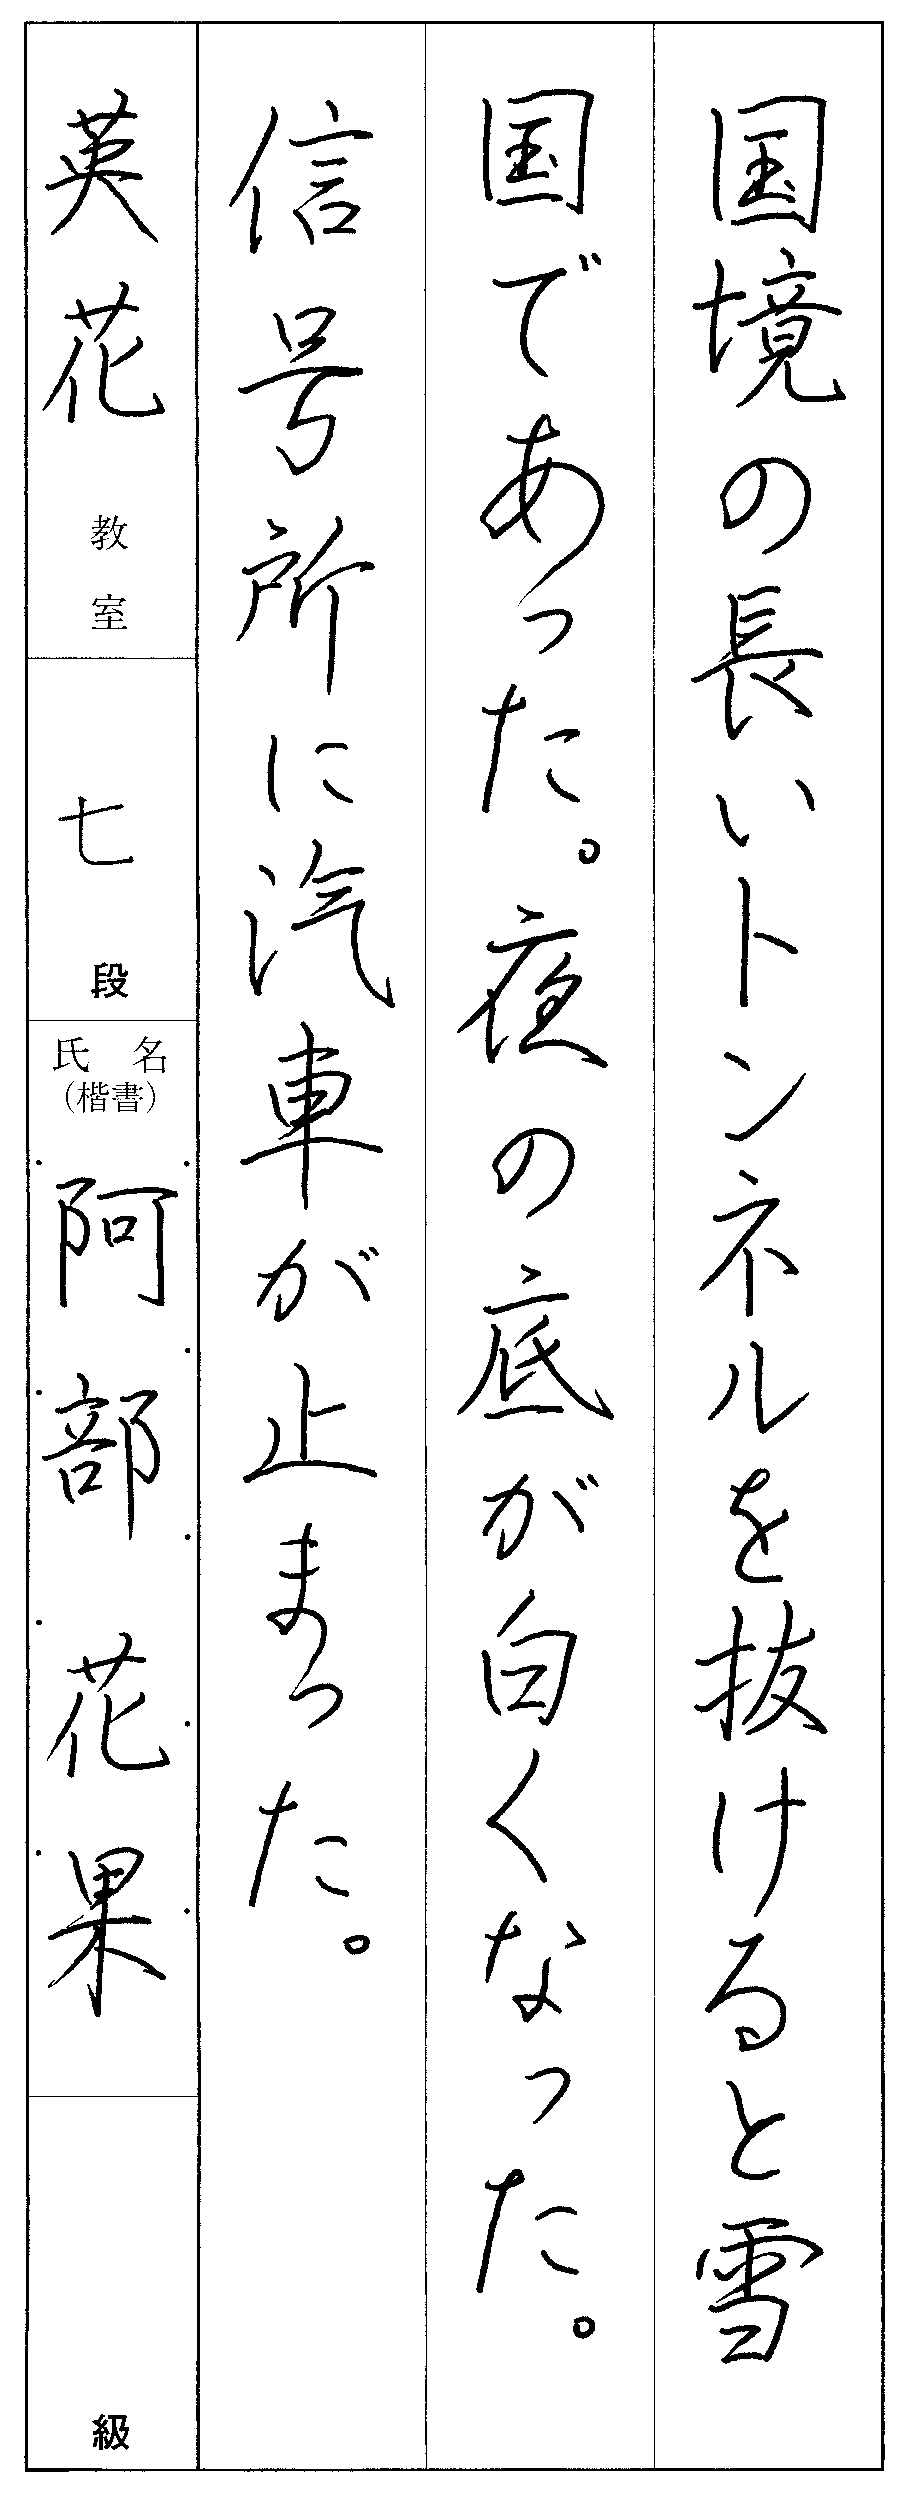 国境の長いトンネルを抜けると雪
国であった。夜の底が白くなった。
信号所に汽車が止まった。
英花教室
七段
氏名
（楷書）
阿部花果
級